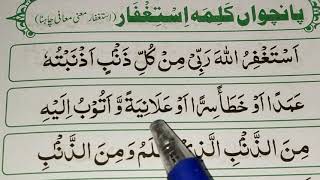 پانچواں کلمہ اِسْتِغْفار (استغفار معنی معافی چاہنا)
اَسْتَغْفِرُ اللهَ رَبِّىْ مِنْ كُلِّ ذَنْۢبٍ اَذْنَبْتُهٗ
عَمَدًا اَوْ خَطَأً سِرًّا اَوْ عَلَانِيَةً وَّ اَتُوْبُ اِلَيْهِ
مِنَ الذَّنْۢبِ الَّذِىْ وَمِنَ الذَّنْۢبِ